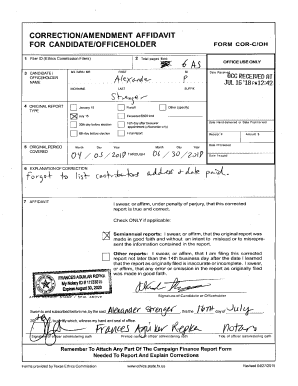 CORRECTION/AMENDMENT AFFIDAVIT
FOR CANDIDATE/OFFICEHOLDER
FORM COR-C/OH
1 Filer ID (Ethics Commission Filers)
2 Total pages filed:
6 AS
OFFICE USE ONLY
3 CANDIDATE/
OFFICEHOLDER
NAME
MS / MRS / MR
FIRST
MI
Alexander
P
NICKNAME
LAST
SUFFIX
Stranger
Date Received
RECEIVED AT
JUL 16 '18 PM 12:42
4 ORIGINAL REPORT
TYPE
January 15
July 15
30th day before election
8th day before election
Runoff
Exceeded $500 limit
15th day after treasurer
appointment (officeholder only)
Final report
Other (specify)
Date Hand-delivered or Date Postmarked
Receipt #
Amount $
Date Processed
Date Imaged
5 ORIGINAL PERIOD
COVERED
Month Day Year
04 / 03 / 2018 THROUGH 06 / 30 / 2018
6 EXPLANATION OF CORRECTION
Forgot to list contributors address & date paid.
7 AFFIDAVIT
I swear, or affirm, under penalty of perjury, that this corrected
report is true and correct.
Check ONLY if applicable:
Semiannual reports: I swear, or affirm, that the original report was
made in good faith and without an intent to mislead or to misrepre-
sent the information contained in the report.
Other reports: I swear, or affirm, that I am filing this corrected
report not later than the 14th business day after the date I learned
that the report as originally filed is inaccurate or incomplete. I swear,
or affirm, that any error or omission in the report as originally filed
was made in good faith.
FRANCES AGUILAR REPKA
My Notary ID #
Expires August 30, 2020
Signature of Candidate or Officeholder
Sworn to and subscribed before me, by the said Alexander Stranger this the 16th day of July
Frances Aguilar Repka
Notary
Signature of officer administering oath
Printed name of officer administering oath
Title of officer administering oath
Remember To Attach Any Part Of The Campaign Finance Report Form
Needed To Report And Explain Corrections
Forms provided by Texas Ethics Commission
www.ethics.state.tx.us